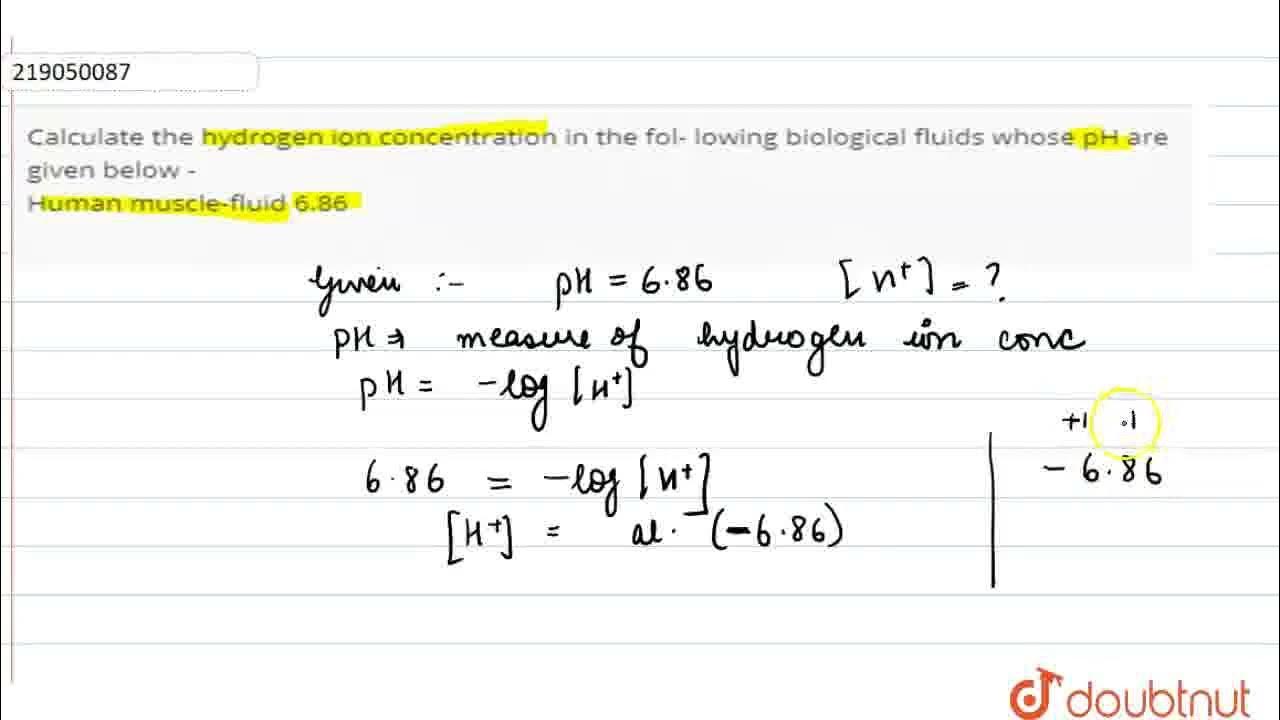 219050087
Calculate the hydrogen ion concentration in the fol- lowing biological fluids whose pH are
given below -
Human muscle-fluid 6.86
Given :- pH = 6.86 [H+] = ?
pH ⇒ measure of hydrogen ion conc
pH = -log [H+]
+1 .1
6.86 = -log [H+]
- 6.86
[H+] = al. (-6.86)
doubtnut